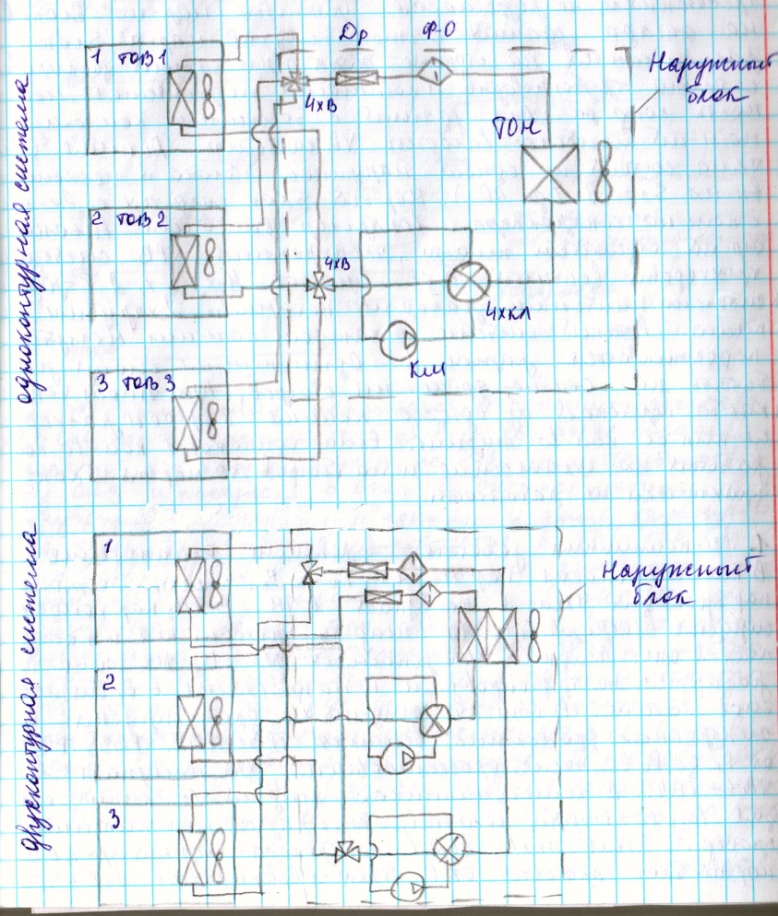 одноконтурная система
Др
Ф-О
1 ТОВ1
4хВ
Наружный
блок
ТОН
2 ТОВ2
4хВ
4хКЛ
КМ
3 ТОВ3
двухконтурная система
1
Наружный
блок
2
3